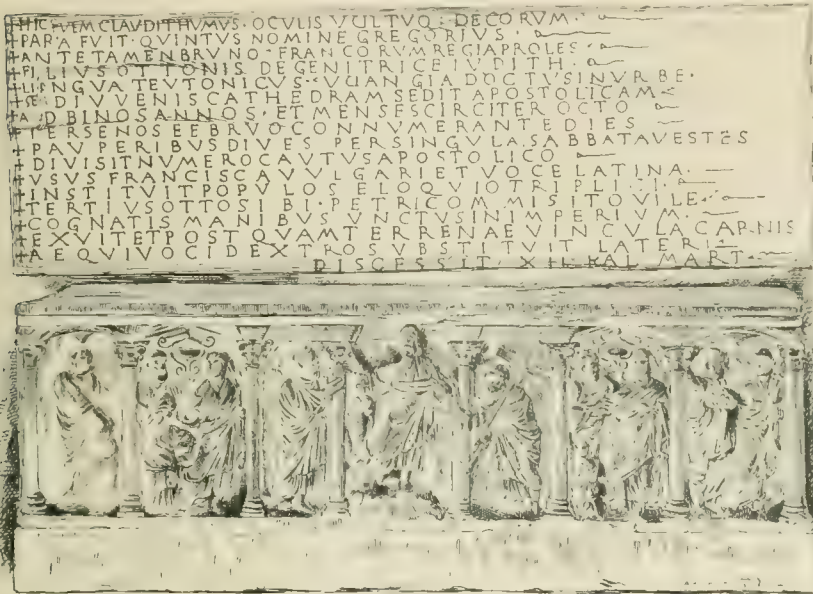 + HIC QVEM CLAVDIT HVMVS · OCVLIS VVLTVQ : DECORVM ·
+ PAPA FVIT · QVINTVS NOMINE GREGORIVS ·
+ ANTE TAMEN BRVNO · FRANCORVM REGIA PROLES ·
+ FILIVS OTTONIS DE GENITRICE IVDITH ·
+ LINGVA TEVTONICVS · VVANGIA DOCTVS IN VRBE ·
+ SE DIVVENIS CATHEDRAM SEDIT APOSTOLICAM
+ AD BINOS ANNOS · ET MENSES CIRCITER OCTO
+ TER SENOS FEBRVO CONNVMERANTE DIES
+ PAVPERIBVS DIVES PER SINGVLA SABBATA VESTES
+ DIVISIT NVMERO CAVTVS APOSTOLICO
+ VSVS FRANCISCA VVLGARI ET VOCE LATINA ·
+ INSTITVIT POPVLOS ELOQVIO TRIPLICI ·
+ TERTIVS OTTO SIBI · PETRI COMMISIT OVILE ·
+ COGNATIS MANIBVS VNCTVS IN IMPERIVM ·
+ EXVIT ET POSTQVAM TERRENAE VINCVLA CARNIS
+ AEQVIVOCI DEXTRO SVBSTITVIT LATERI
DISCESSIT · XII KAL MART ·